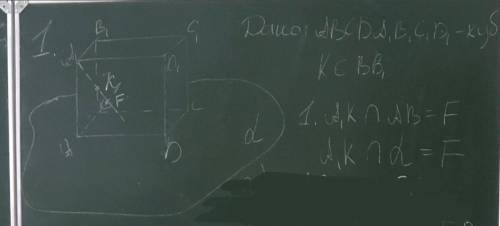 1.
B₁ C₁
A₁ D₁
K
F
A D C
α
Дано: ABCDA₁B₁C₁D₁ - куб
K ⊂ BB₁
1. A₁K ∩ AB = F
A₁K ∩ α = F